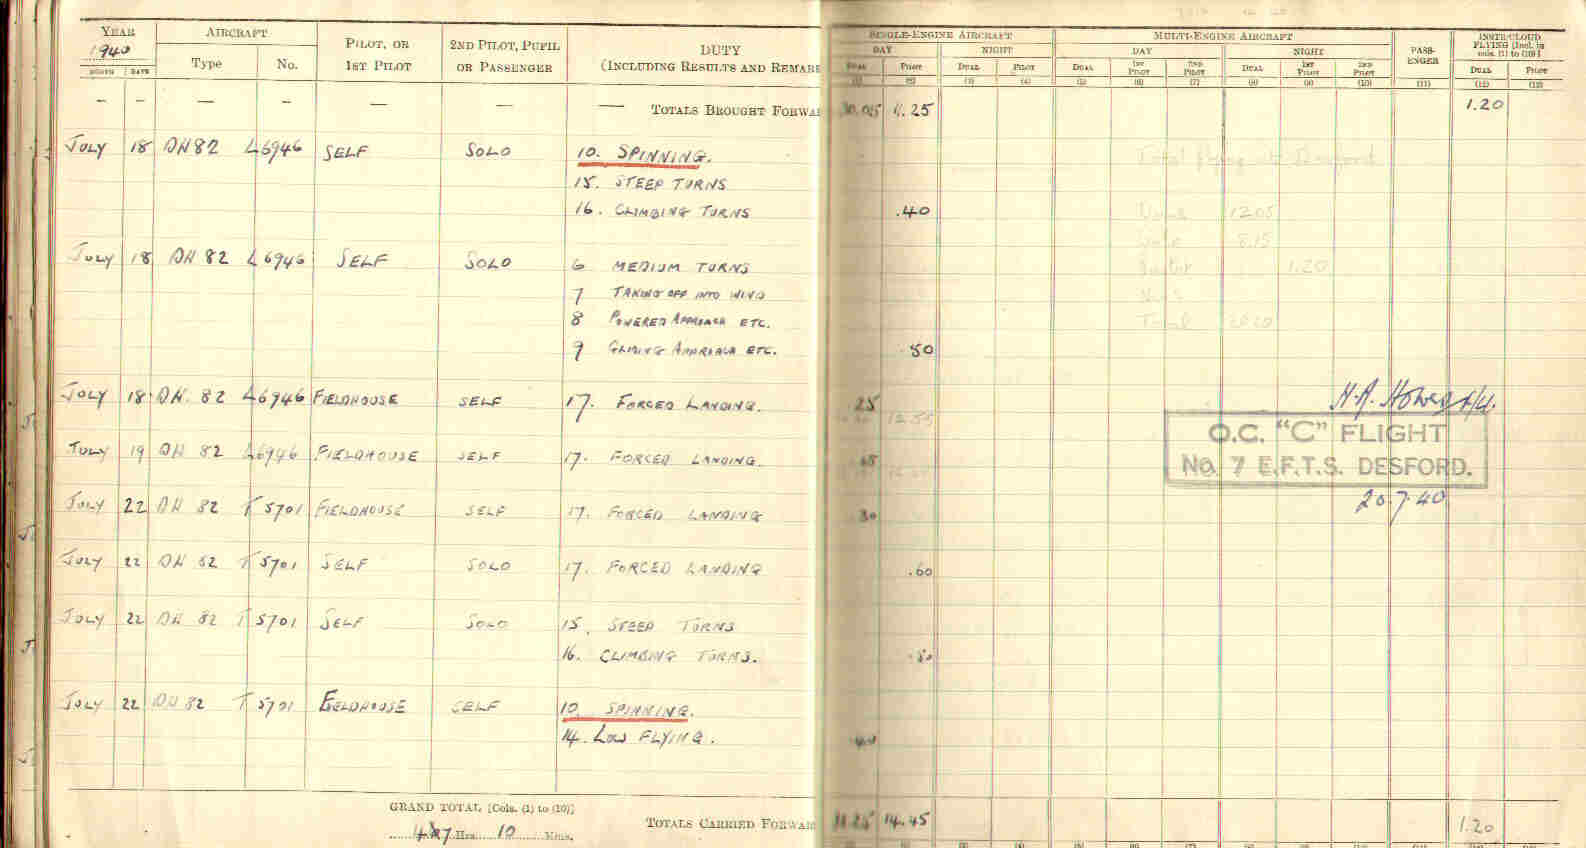 YEAR AIRCRAFT PILOT, OR 1ST PILOT 2ND PILOT, PUPIL OR PASSENGER DUTY (INCLUDING RESULTS AND REMAR SINGLE-ENGINE AIRCRAFT MULTI-ENGINE AIRCRAFT PASS-ENGER INSTR/CLOUD FLYING [Incl. in cols. (1) to (10)]
1940 Type No. DAY NIGHT DAY NIGHT
MONTH DATE DUAL PILOT DUAL PILOT DUAL 1ST PILOT 2ND PILOT DUAL 1ST PILOT 2ND PILOT DUAL PILOT
(1) (2) (3) (4) (5) (6) (7) (8) (9) (10) (11) (12) (13)
— — — — — — — TOTALS BROUGHT FORWA 11.25 1.20
JULY 18 DH82 L6946 SELF SOLO 10. SPINNING.
15. STEEP TURNS
16. CLIMBING TURNS .40
JULY 18 DH 82 L6946 SELF SOLO 6 MEDIUM TURNS
7 TAKING OFF INTO WIND
8 POWERED APPROACH ETC.
9 GLIDING APPROACH ETC. .50
JULY 18 DH. 82 L6946 FIELDHOUSE SELF 17. FORCED LANDING. .25
O.C. "C" FLIGHT
No. 7 E.F.T.S. DESFORD.
JULY 19 DH 82 L6946 FIELDHOUSE SELF 17. FORCED LANDING.
20.7.40
JULY 22 DH 82 T5701 FIELDHOUSE SELF 17. FORCED LANDING .30
JULY 22 DH 82 T5701 SELF SOLO 17. FORCED LANDING .60
JULY 22 DH 82 T5701 SELF SOLO 15. STEEP TURNS
16. CLIMBING TURNS. .50
JULY 22 DH 82 T5701 FIELDHOUSE SELF 10. SPINNING.
14. LOW FLYING. .40
GRAND TOTAL [Cols. (1) to (10)]
Hrs. 10 Mins. TOTALS CARRIED FORWAR 14.45 1.20